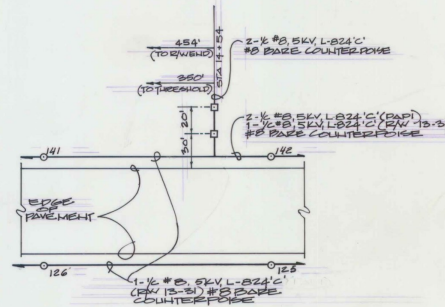 454'
(TO R/WEND)
STA 14+54
2-1/C #8, 5KV, L-824'C'
#8 BARE COUNTERPOISE
350'
(TO THRESHOLD)
20'
30'
2-1/C #8, 5KV, L-824'C' (PAPI)
1-1/C #8, 5KV, L-824'C' (R/W 13-3
#8 BARE COUNTERPOISE
141
142
EDGE
OF
PAVEMENT
126
125
1-1/C #8, 5KV, L-824'C'
(R/W 13-31) #8 BARE
COUNTERPOISE